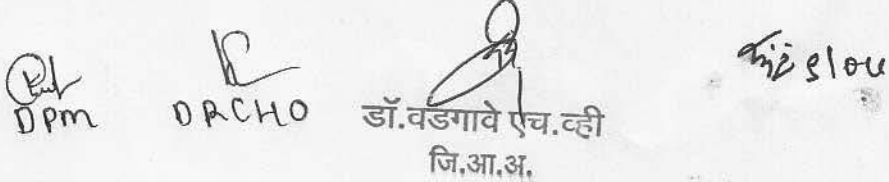 DPM DRCHO डॉ.वडगावे एच.व्ही
जि.आ.अ.